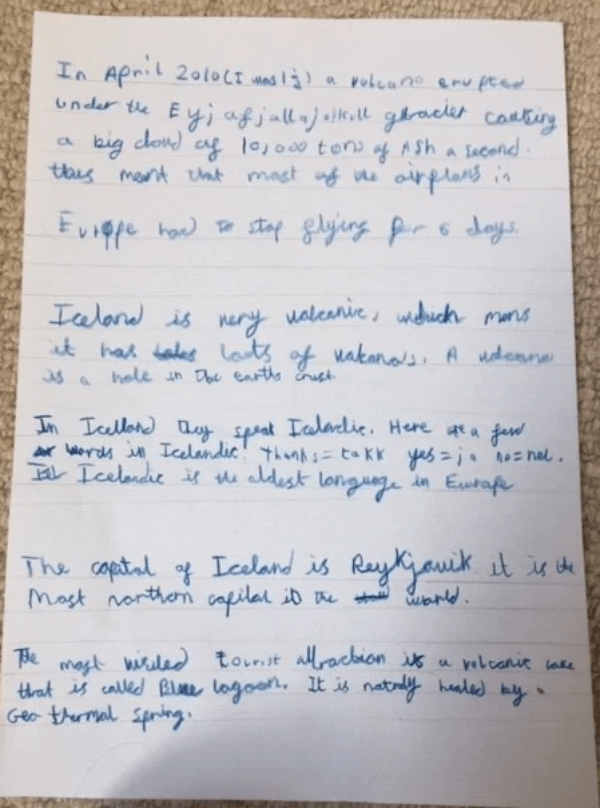 In April 2010 (I was 1½) a volcano erupted
under the Eyjafjallajokull glacier causing
a big cloud of 10,000 tons of Ash a second.
this ment that most of the airplans in
Europe had to stop flying for 6 days.
Iceland is very volcanic, which mens
it has lots of volcanos. A volcano
is a hole in the earths crust
In Iceland they speak Icelandic. Here are a few
words in Icelandic! Thanks = takk yes = ja no = nei.
Icelandic is the oldest language in Europe
The capital of Iceland is Reykjavik it is the
Most northern capital in the world.
The most visited tourist attraction is a volcanic lake
that is called Blue lagoon. It is heated by a
Geo thermal spring.